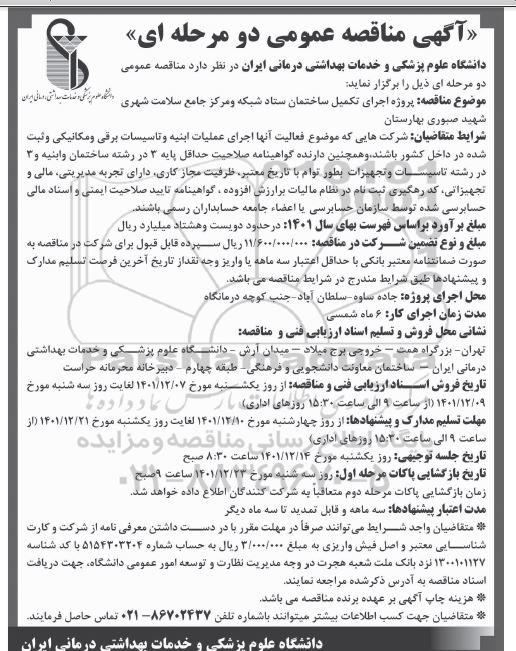 «آگهی مناقصه عمومی دو مرحله ای»
دانشگاه علوم پزشکی و خدمات بهداشتی درمانی ایران
دانشگاه علوم پزشکی و خدمات بهداشتی درمانی ایران در نظر دارد مناقصه عمومی
دو مرحله ای ذیل را برگزار نماید:
موضوع مناقصه: پروژه اجرای تکمیل ساختمان ستاد شبکه ومرکز جامع سلامت شهری
شهید صبوری بهارستان
شرایط متقاضیان: شرکت هایی که موضوع فعالیت آنها اجرای عملیات ابنیه وتاسیسات برقی ومکانیکی وثبت
شده در داخل کشور باشند،وهمچنین دارنده گواهینامه صلاحیت حداقل پایه ۳ در رشته ساختمان وابنیه و۳
در رشته تاسیسات وتجهیزات بطور توام با تاریخ معتبر، ظرفیت مجاز کاری، دارای تجربه مدیریتی، مالی و
تجهیزاتی، کد رهگیری ثبت نام در نظام مالیات برارزش افزوده ، گواهینامه تایید صلاحیت ایمنی و اسناد مالی
حسابرسی شده توسط سازمان حسابرسی یا اعضاء جامعه حسابداران رسمی باشند.
مبلغ برآورد براساس فهرست بهای سال ۱۴۰۱: درحدود دویست وهشتاد میلیارد ریال
مبلغ و نوع تضمین شرکت در مناقصه: ۱۱/۶۰۰/۰۰۰/۰۰۰ ریال سپرده قابل قبول برای شرکت در مناقصه به
صورت ضمانتنامه معتبر بانکی با حداقل اعتبار سه ماهه یا واریز وجه نقداز تاریخ آخرین فرصت تسلیم مدارک
و پیشنهادها طبق شرایط مندرج در شرایط مناقصه می باشد.
محل اجرای پروژه: جاده ساوه-سلطان آباد-جنب کوچه درمانگاه
مدت زمان اجرای کار: ۶ ماه شمسی
نشانی محل فروش و تسلیم اسناد ارزیابی فنی و مناقصه:
تهران- بزرگراه همت – خروجی برج میلاد – میدان آرش - دانشگاه علوم پزشکی و خدمات بهداشتی
درمانی ایران – ساختمان معاونت دانشجویی و فرهنگی- طبقه چهارم - دبیرخانه محرمانه حراست
تاریخ فروش اسناد ارزیابی فنی و مناقصه: از روز یکشنبه مورخ ۱۴۰۱/۱۲/۰۷ لغایت روز سه شنبه مورخ
۱۴۰۱/۱۲/۰۹ (از ساعت ۹ الی ساعت ۱۵:۳۰ روزهای اداری)
مهلت تسلیم مدارک و پیشنهادها: از روز چهارشنبه مورخ ۱۴۰۱/۱۲/۱۰ لغایت روز یکشنبه مورخ ۱۴۰۱/۱۲/۲۱ (از
ساعت ۹ الی ساعت ۱۵:۳۰ روزهای اداری)
تاریخ جلسه توجیهی: روز یکشنبه مورخ ۱۴۰۱/۱۲/۱۴ ساعت ۸:۳۰ صبح
تاریخ بازگشایی پاکات مرحله اول: روز سه شنبه مورخ ۱۴۰۱/۱۲/۲۳ ساعت ۹صبح
زمان بازگشایی پاکات مرحله دوم متعاقباً به شرکت کنندگان اطلاع داده خواهد شد.
مدت اعتبار پیشنهادها: سه ماهه و قابل تمدید تا سه ماه دیگر
※ متقاضیان واجد شرایط می توانند صرفاً در مهلت مقرر با در دست داشتن معرفی نامه از شرکت و کارت
شناسایی معتبر و اصل فیش واریزی به مبلغ ۳/۰۰۰/۰۰۰ ریال به حساب شماره ۵۱۵۴۳۰۳۲۰۴ با کد شناسه
۱۳۰۰۱۰۱۱۲۷ نزد بانک ملت شعبه هجرت در وجه مدیریت نظارت و توسعه امور عمومی دانشگاه، جهت دریافت
اسناد مناقصه به آدرس ذکرشده مراجعه نمایند.
※ هزینه چاپ آگهی بر عهده برنده مناقصه می باشد.
※ متقاضیان جهت کسب اطلاعات بیشتر میتوانند باشماره تلفن ۸۶۷۰۲۴۳۷-۰۲۱ تماس حاصل فرمایند.
دانشگاه علوم پزشکی و خدمات بهداشتی درمانی ایران